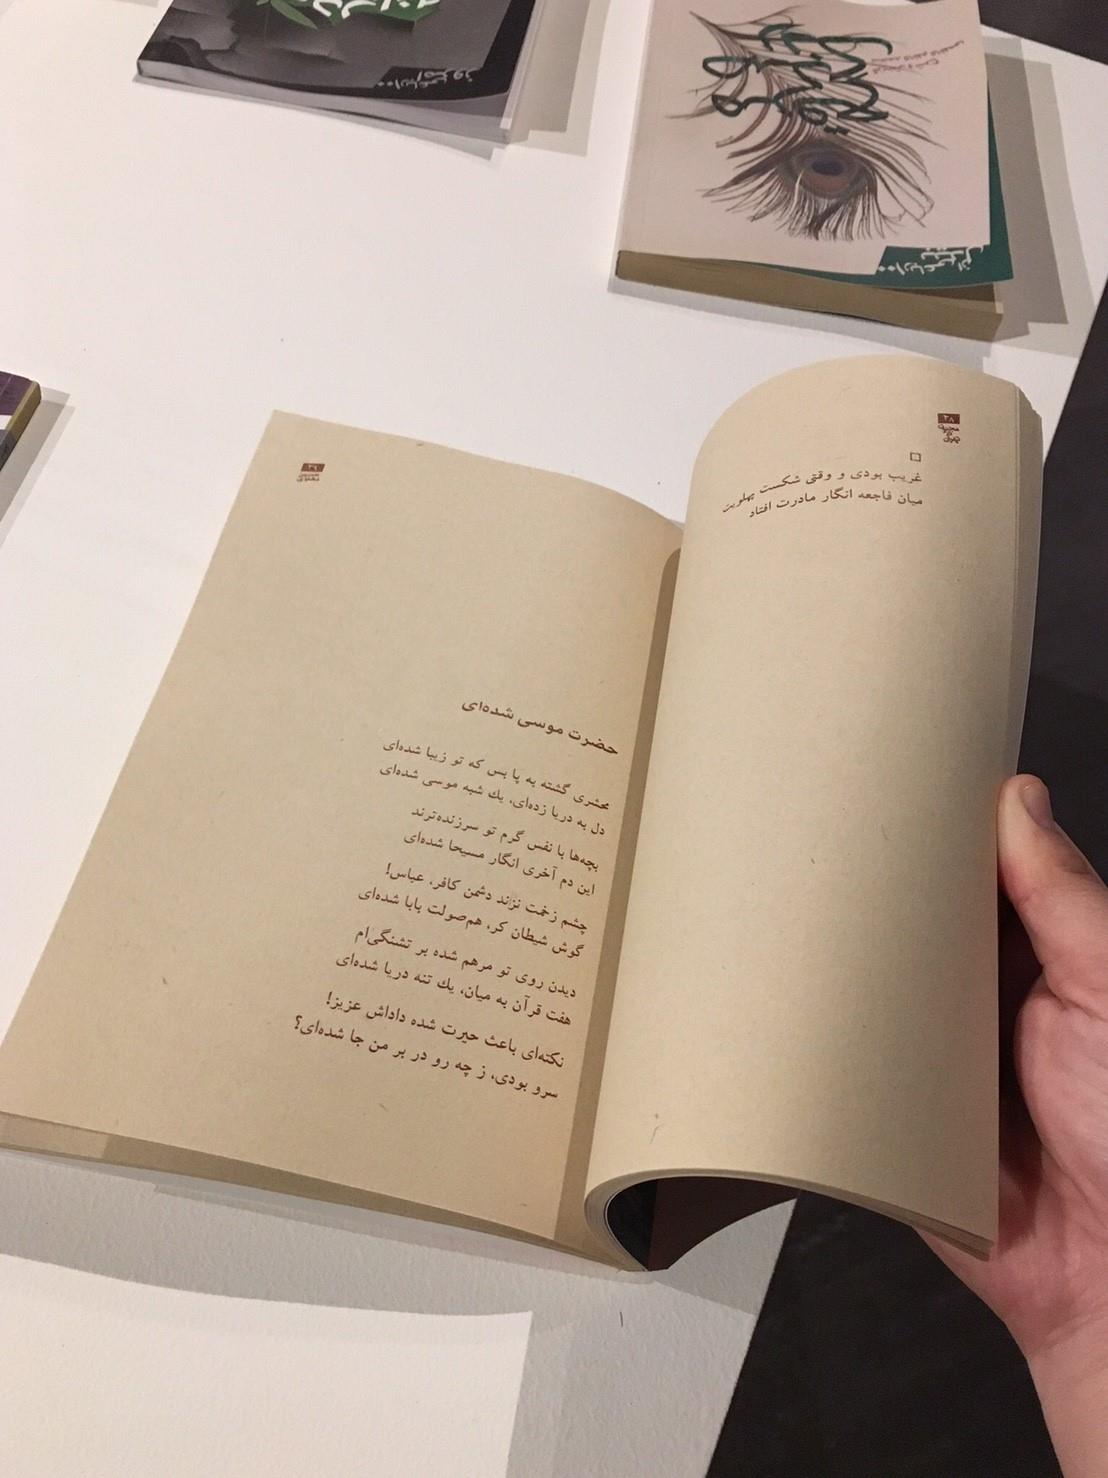 ۳۸
غریب بودی و وقتی شکست پهلویت
میان فاجعه انگار مادرت افتاد
۳۹
حضرت موسی شده‌ای
محشری گشته به پا بس که تو زیبا شده‌ای
دل به دریا زده‌ای، یك شبه موسی شده‌ای
بچه‌ها با نفس گرم تو سرزنده‌ترند
این دم آخری انگار مسیحا شده‌ای
چشم زخمت نزند دشمن کافر، عباس!
گوش شیطان کر، هم‌صولت بابا شده‌ای
دیدن روی تو مرهم شده بر تشنگی‌ام
هفت قرآن به میان، یك تنه دریا شده‌ای
نکته‌ای باعث حیرت شده داداش عزیز!
سرو بودی، ز چه رو در بر من جا شده‌ای؟